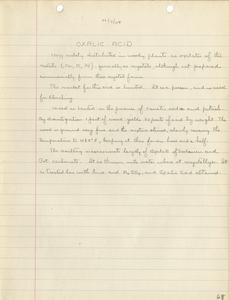 OXALIC ACID
Very widely distributed in woody plants as oxalates of the
metals (Na, K, ), generally as crystals, although not prepared
commercially from this natural form.
The market for this acid is limited. It is a poison, and is used
for bleaching.
Wood is heated in the presence of caustic soda and potash.
By 1 part of wood yields parts of acid by weight. The
wood is ground very fine and the mixture stirred, slowly raising the
temperature to , keeping at this for an hour and a half.
The resulting mass consists largely of oxalate of sodium and
Pot. carbonate. It is thrown into water where it crystallizes. It
is treated with lime and H₂SO₄, and oxalic acid obtained.
68